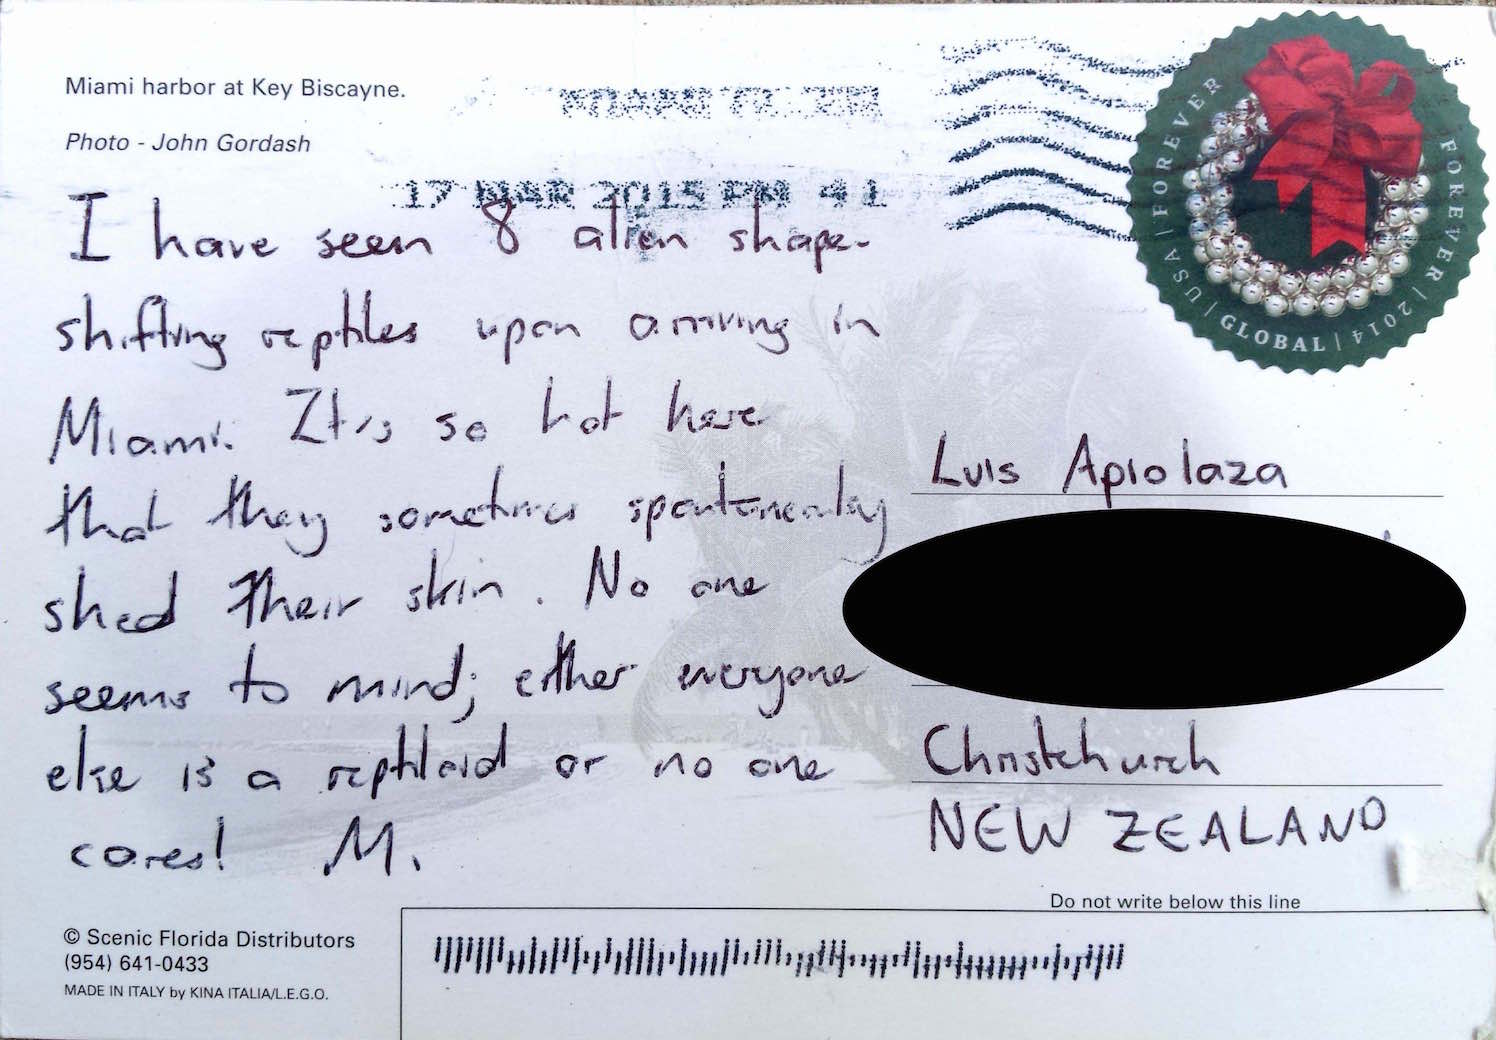 Miami harbor at Key Biscayne.
Photo - John Gordash
17 MAR 2015 PM 4 1
USA | FOREVER
FOREVER | 2014
| GLOBAL |
I have seen 8 alien shape-
shifting reptiles upon arriving in
Miami. It's so hot here
that they sometimes spontaneously
shed their skin. No one
seems to mind; either everyone
else is a reptiloid or no one
cares! M.
Luis Apiolaza
Christchurch
NEW ZEALAND
Do not write below this line
© Scenic Florida Distributors
(954) 641-0433
MADE IN ITALY by KINA ITALIA/L.E.G.O.